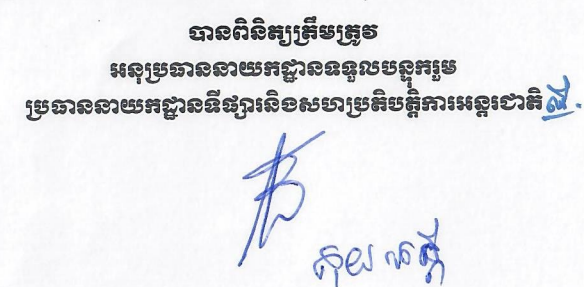 បានពិនិត្យត្រឹមត្រូវ
អនុប្រធាននាយកដ្ឋានទទួលបន្ទុករួម
ប្រធាននាយកដ្ឋានទីផ្សារនិងសហប្រតិបត្តិការអន្តរជាតិ